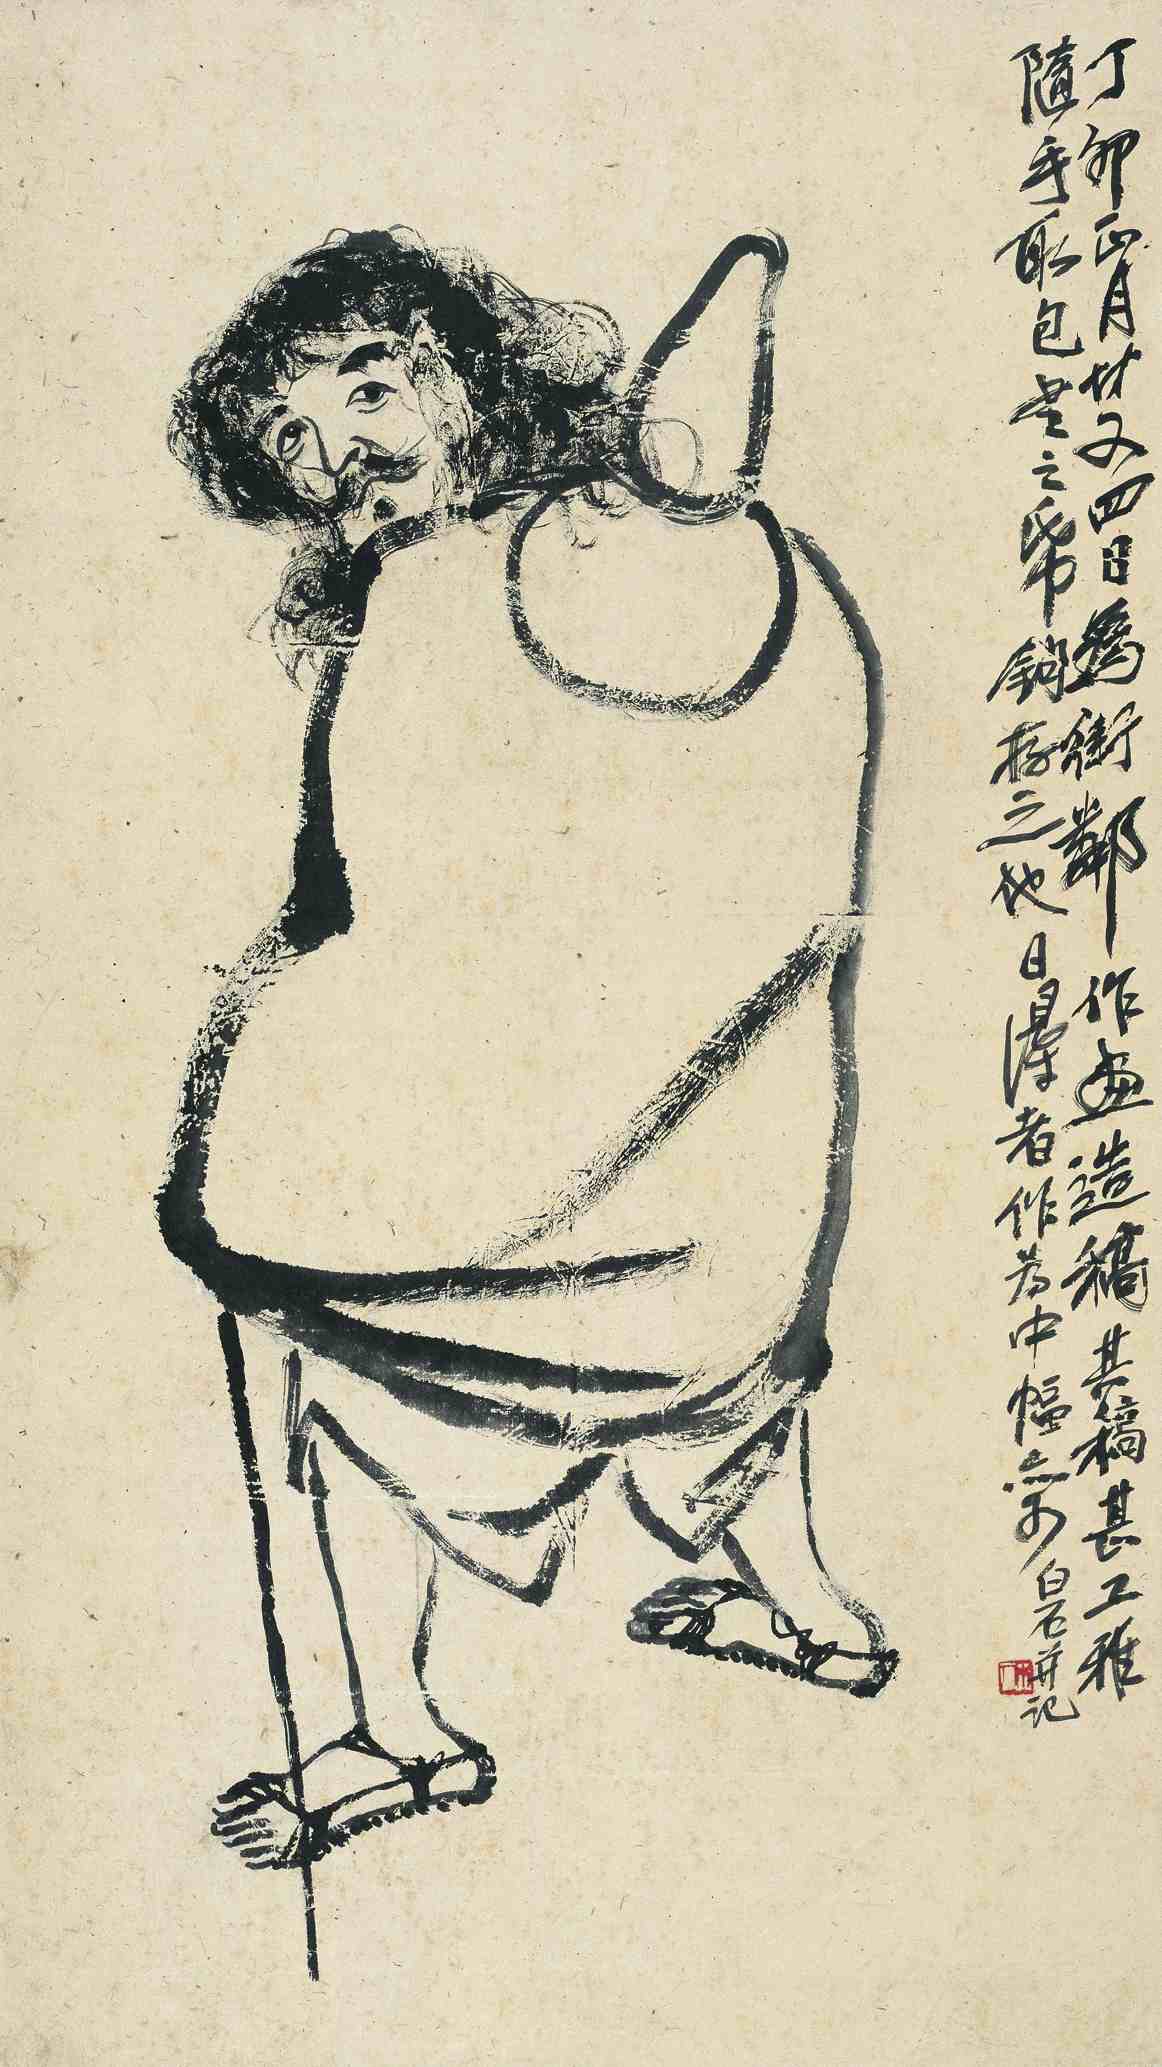 丁卯正月廿又四日為街鄰作画造稿其稿甚工雅
随手取包書之㡀紙鉤存之他日得者作為中幅亦可
白石并记